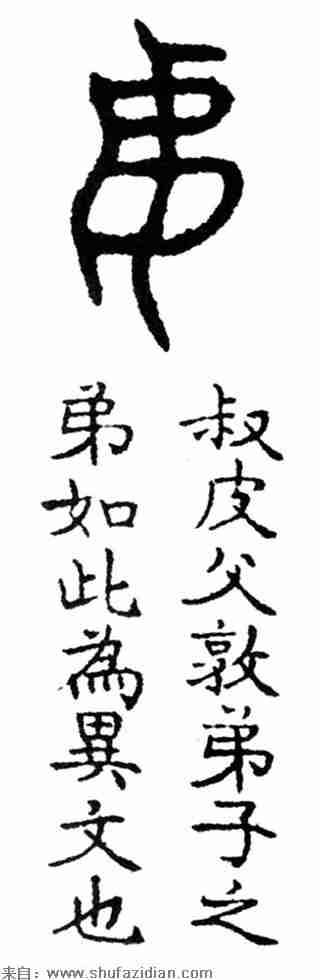 叔皮父敦弟子之
弟如此為異文也
来自：www.shufazidian.com